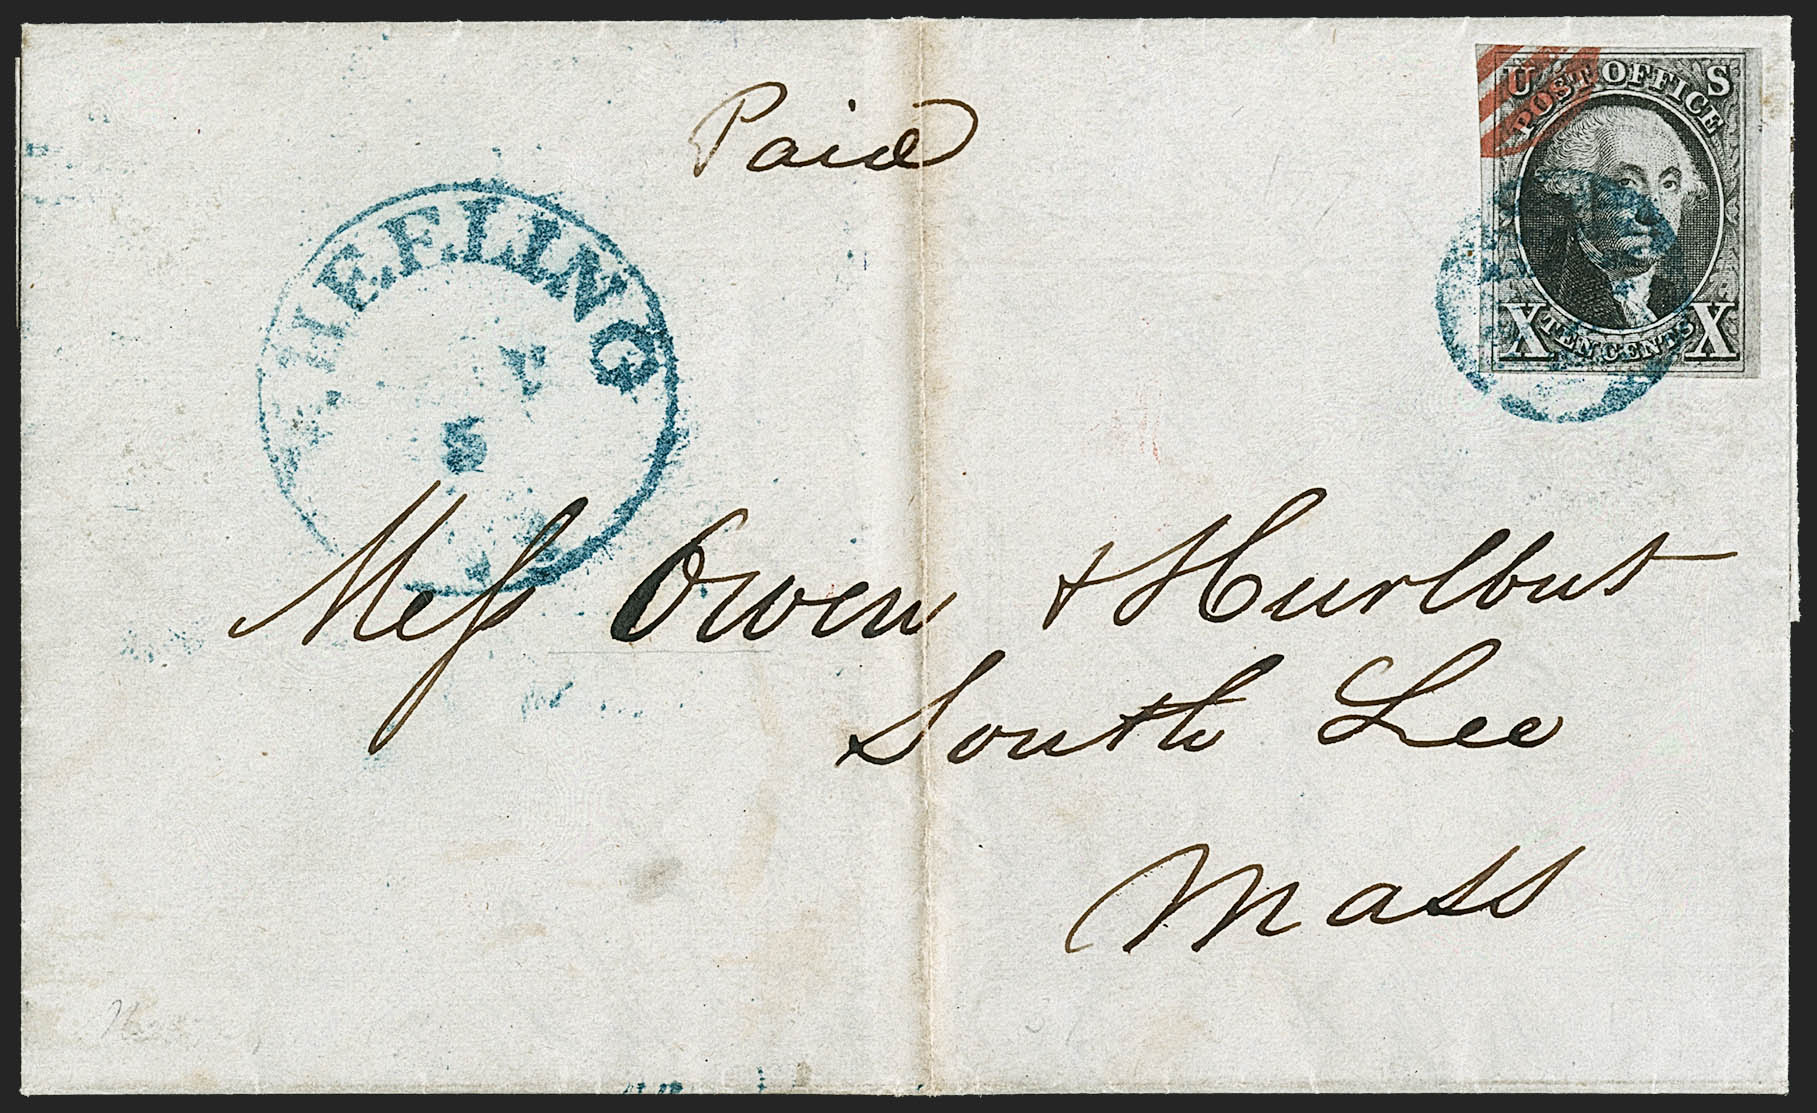 Paid
U S
POST OFFICE
X TEN CENTS X
WHEELING
5
Mess Owen & Hurlbut
South Lee
Mass